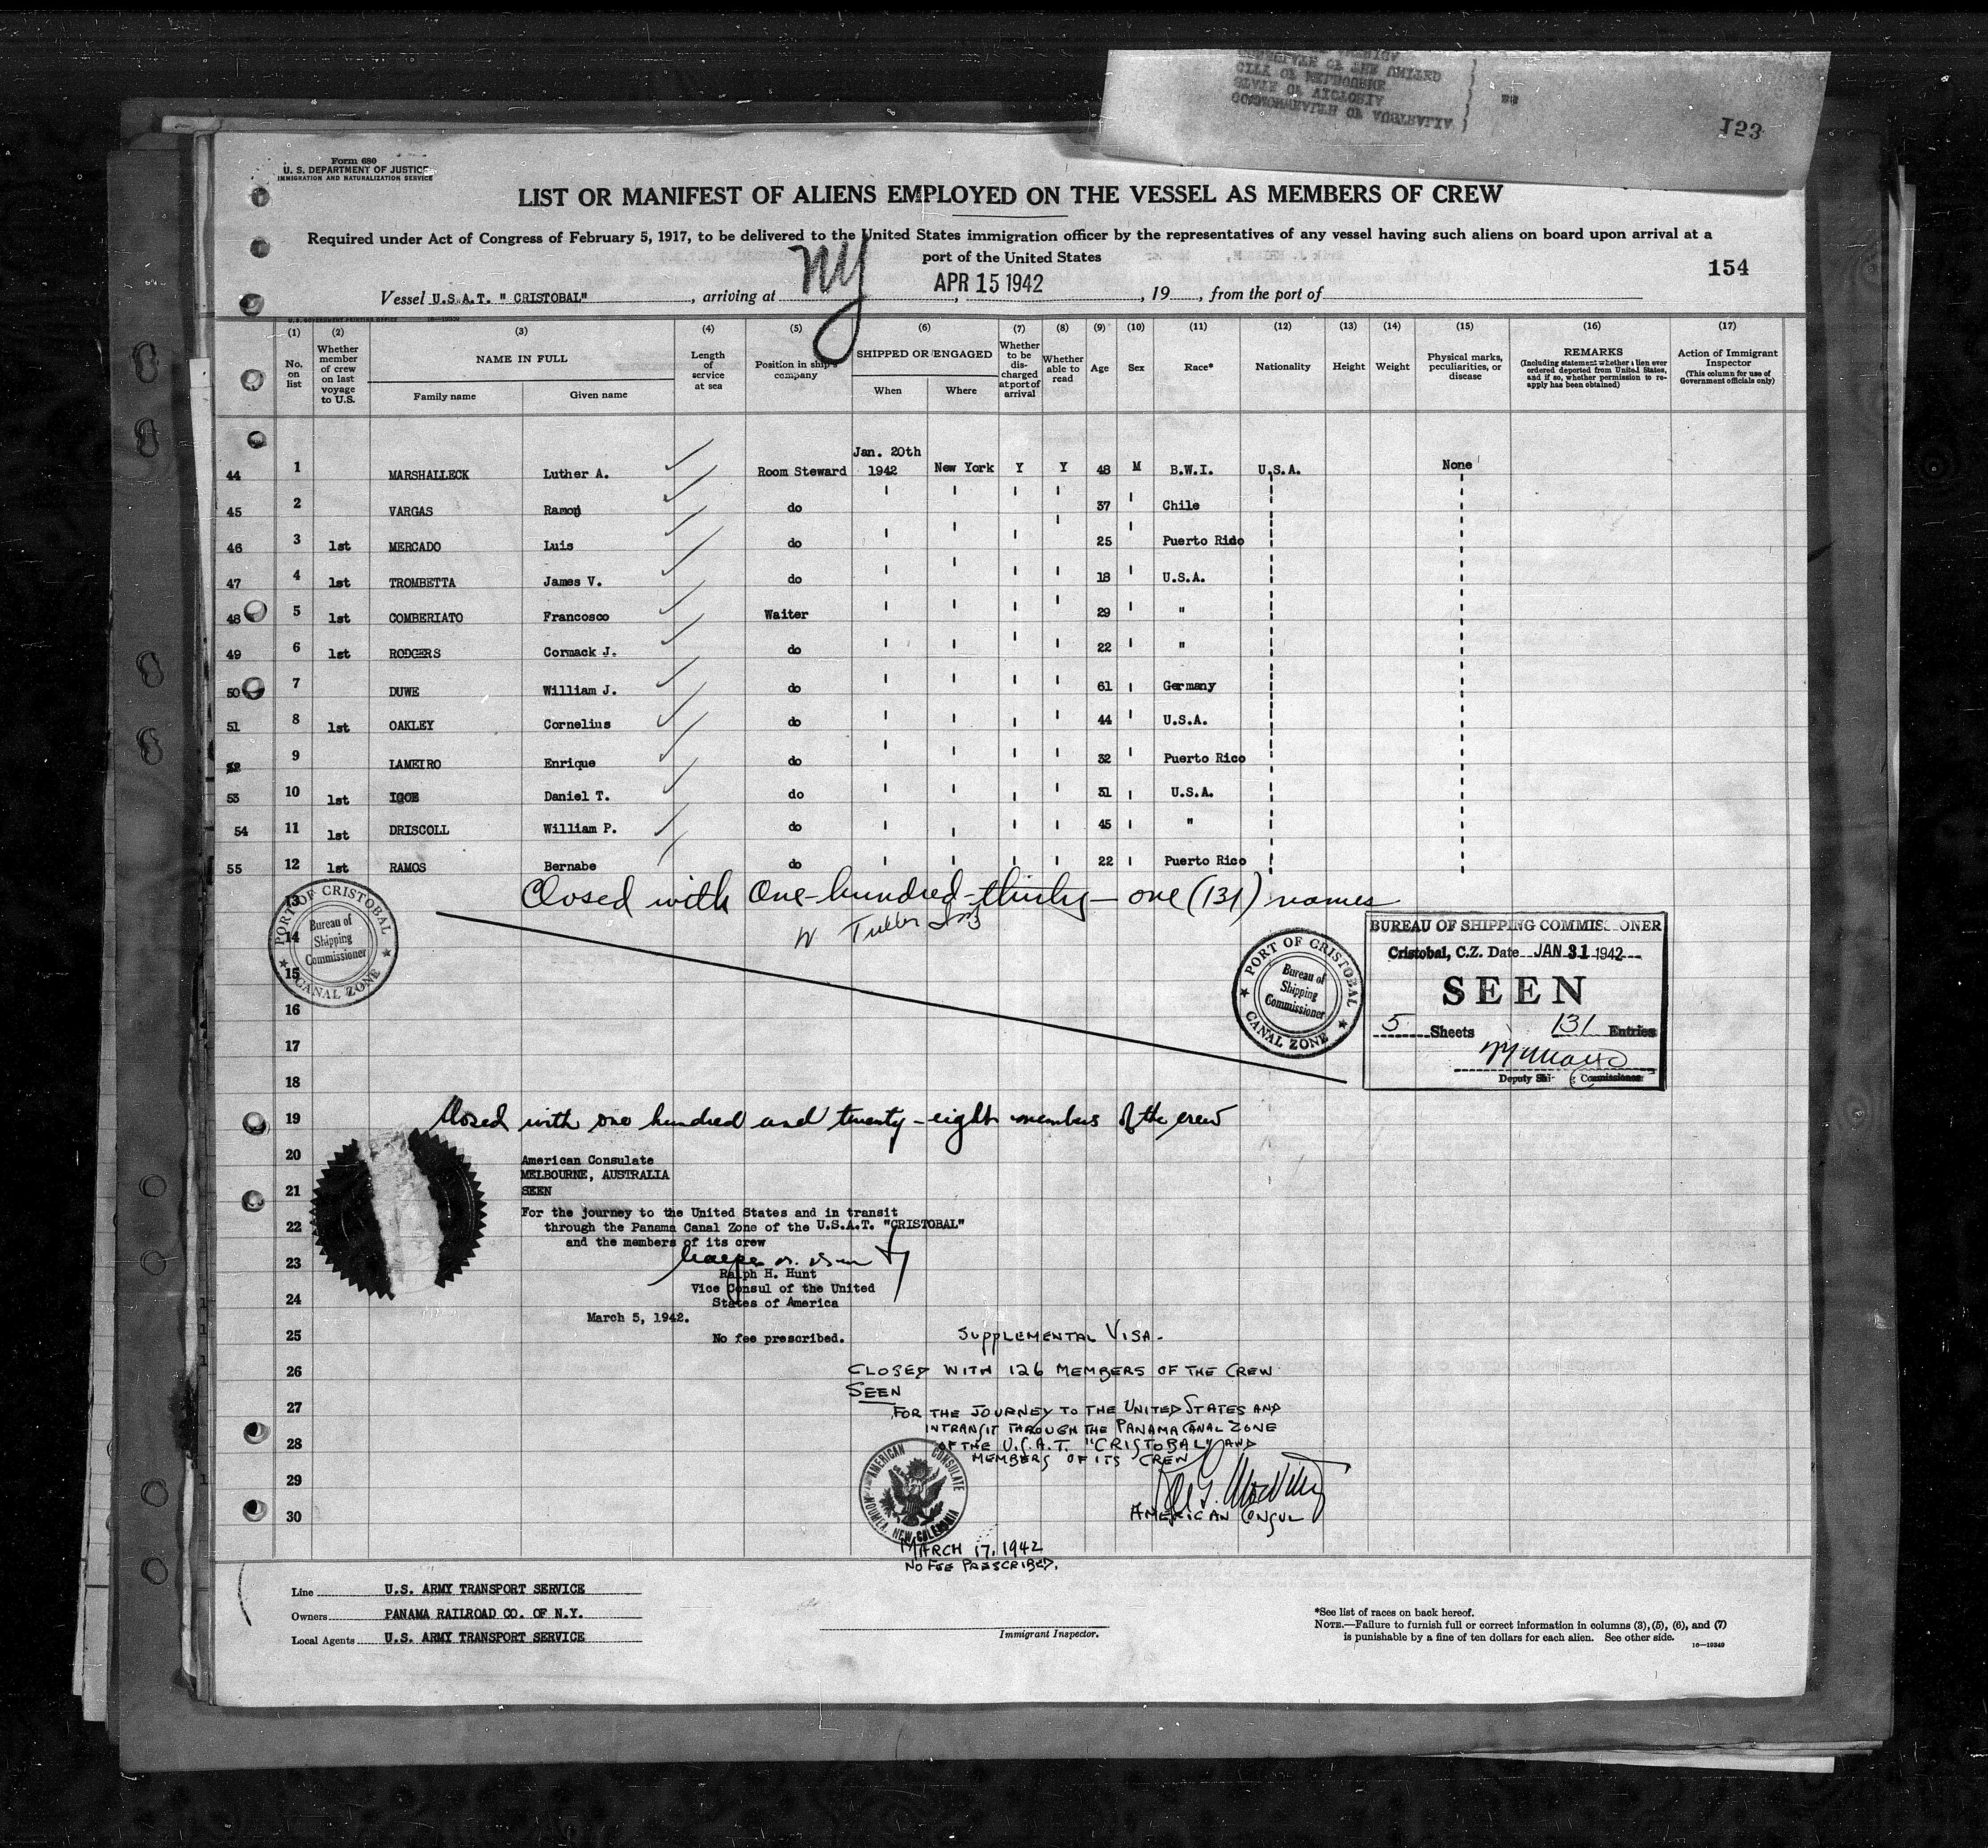 COMMONWEALTH OF AUSTRALIA
STATE OF VICTORIA
CITY OF MELBOURNE
CONSULATE OF THE UNITED
SS
123
Form 680
U. S. DEPARTMENT OF JUSTICE
IMMIGRATION AND NATURALIZATION SERVICE
LIST OR MANIFEST OF ALIENS EMPLOYED ON THE VESSEL AS MEMBERS OF CREW
Required under Act of Congress of February 5, 1917, to be delivered to the United States immigration officer by the representatives of any vessel having such aliens on board upon arrival at a
port of the United States
154
Vessel U.S.A.T. " CRISTOBAL" , arriving at NY , APR 15 1942 , 19 , from the port of
(1) (2) (3) (4) (5) (6) (7) (8) (9) (10) (11) (12) (13) (14) (15) (16) (17)
No. on list
Whether member of crew on last voyage to U.S.
NAME IN FULL
Family name
Given name
Length of service at sea
Position in ship's company
SHIPPED OR ENGAGED
When
Where
Whether to be discharged at port of arrival
Whether able to read
Age
Sex
Race*
Nationality
Height
Weight
Physical marks, peculiarities, or disease
REMARKS
(Including statement whether alien ever ordered deported from United States, and if so, whether permission to reapply has been obtained)
Action of Immigrant Inspector
(This column for use of Government officials only)
44 1 MARSHALLECK Luther A. Room Steward Jan. 20th 1942 New York Y Y 48 M B.W.I. U.S.A. None
45 2 VARGAS Ramon do 37 Chile
46 3 1st MERCADO Luis do 25 Puerto Rico
47 4 1st TROMBETTA James V. do 18 U.S.A.
48 5 1st COMBERIATO Francosco Waiter 29 "
49 6 1st RODGERS Cormack J. do 22 "
50 7 DUWE William J. do 61 Germany
51 8 1st OAKLEY Cornelius do 44 U.S.A.
52 9 LAMEIRO Enrique do 32 Puerto Rico
53 10 1st IGOE Daniel T. do 31 U.S.A.
54 11 1st DRISCOLL William P. do 45 "
55 12 1st RAMOS Bernabe do 22 Puerto Rico
13
Closed with One-hundred-thirty-one (131) names
14
15
16
17
18
PORT OF CRISTOBAL
Bureau of
Shipping
Commissioner
CANAL ZONE
PORT OF CRISTOBAL
Bureau of
Shipping
Commissioner
CANAL ZONE
BUREAU OF SHIPPING COMMISSIONER
Cristobal, C.Z. Date JAN 31 1942
SEEN
5 Sheets 131 Entries
Deputy Shipping Commissioner
19
Closed with one hundred and twenty-eight members of the crew
20
21
22
23
24
25
26
27
28
29
30
American Consulate
MELBOURNE, AUSTRALIA
SEEN
For the journey to the United States and in transit
through the Panama Canal Zone of the U.S.A.T. "CRISTOBAL"
and the members of its crew
Ralph H. Hunt
Vice Consul of the United
States of America
March 5, 1942.
No fee prescribed.
SUPPLEMENTAL VISA.
CLOSED WITH 126 MEMBERS OF THE CREW
SEEN
FOR THE JOURNEY TO THE UNITED STATES AND
INTRANSIT THROUGH THE PANAMA CANAL ZONE
OF THE U.S.A.T. "CRISTOBAL" AND
MEMBERS OF ITS CREW
AMERICAN CONSUL
AMERICAN CONSULATE
NOUMEA, NEW CALEDONIA
MARCH 17, 1942
NO FEE PRESCRIBED.
Line U.S. ARMY TRANSPORT SERVICE
Owners PANAMA RAILROAD CO. OF N.Y.
Local Agents U.S. ARMY TRANSPORT SERVICE
Immigrant Inspector.
*See list of races on back hereof.
NOTE.—Failure to furnish full or correct information in columns (3), (5), (6), and (7)
is punishable by a fine of ten dollars for each alien. See other side.
16—19349